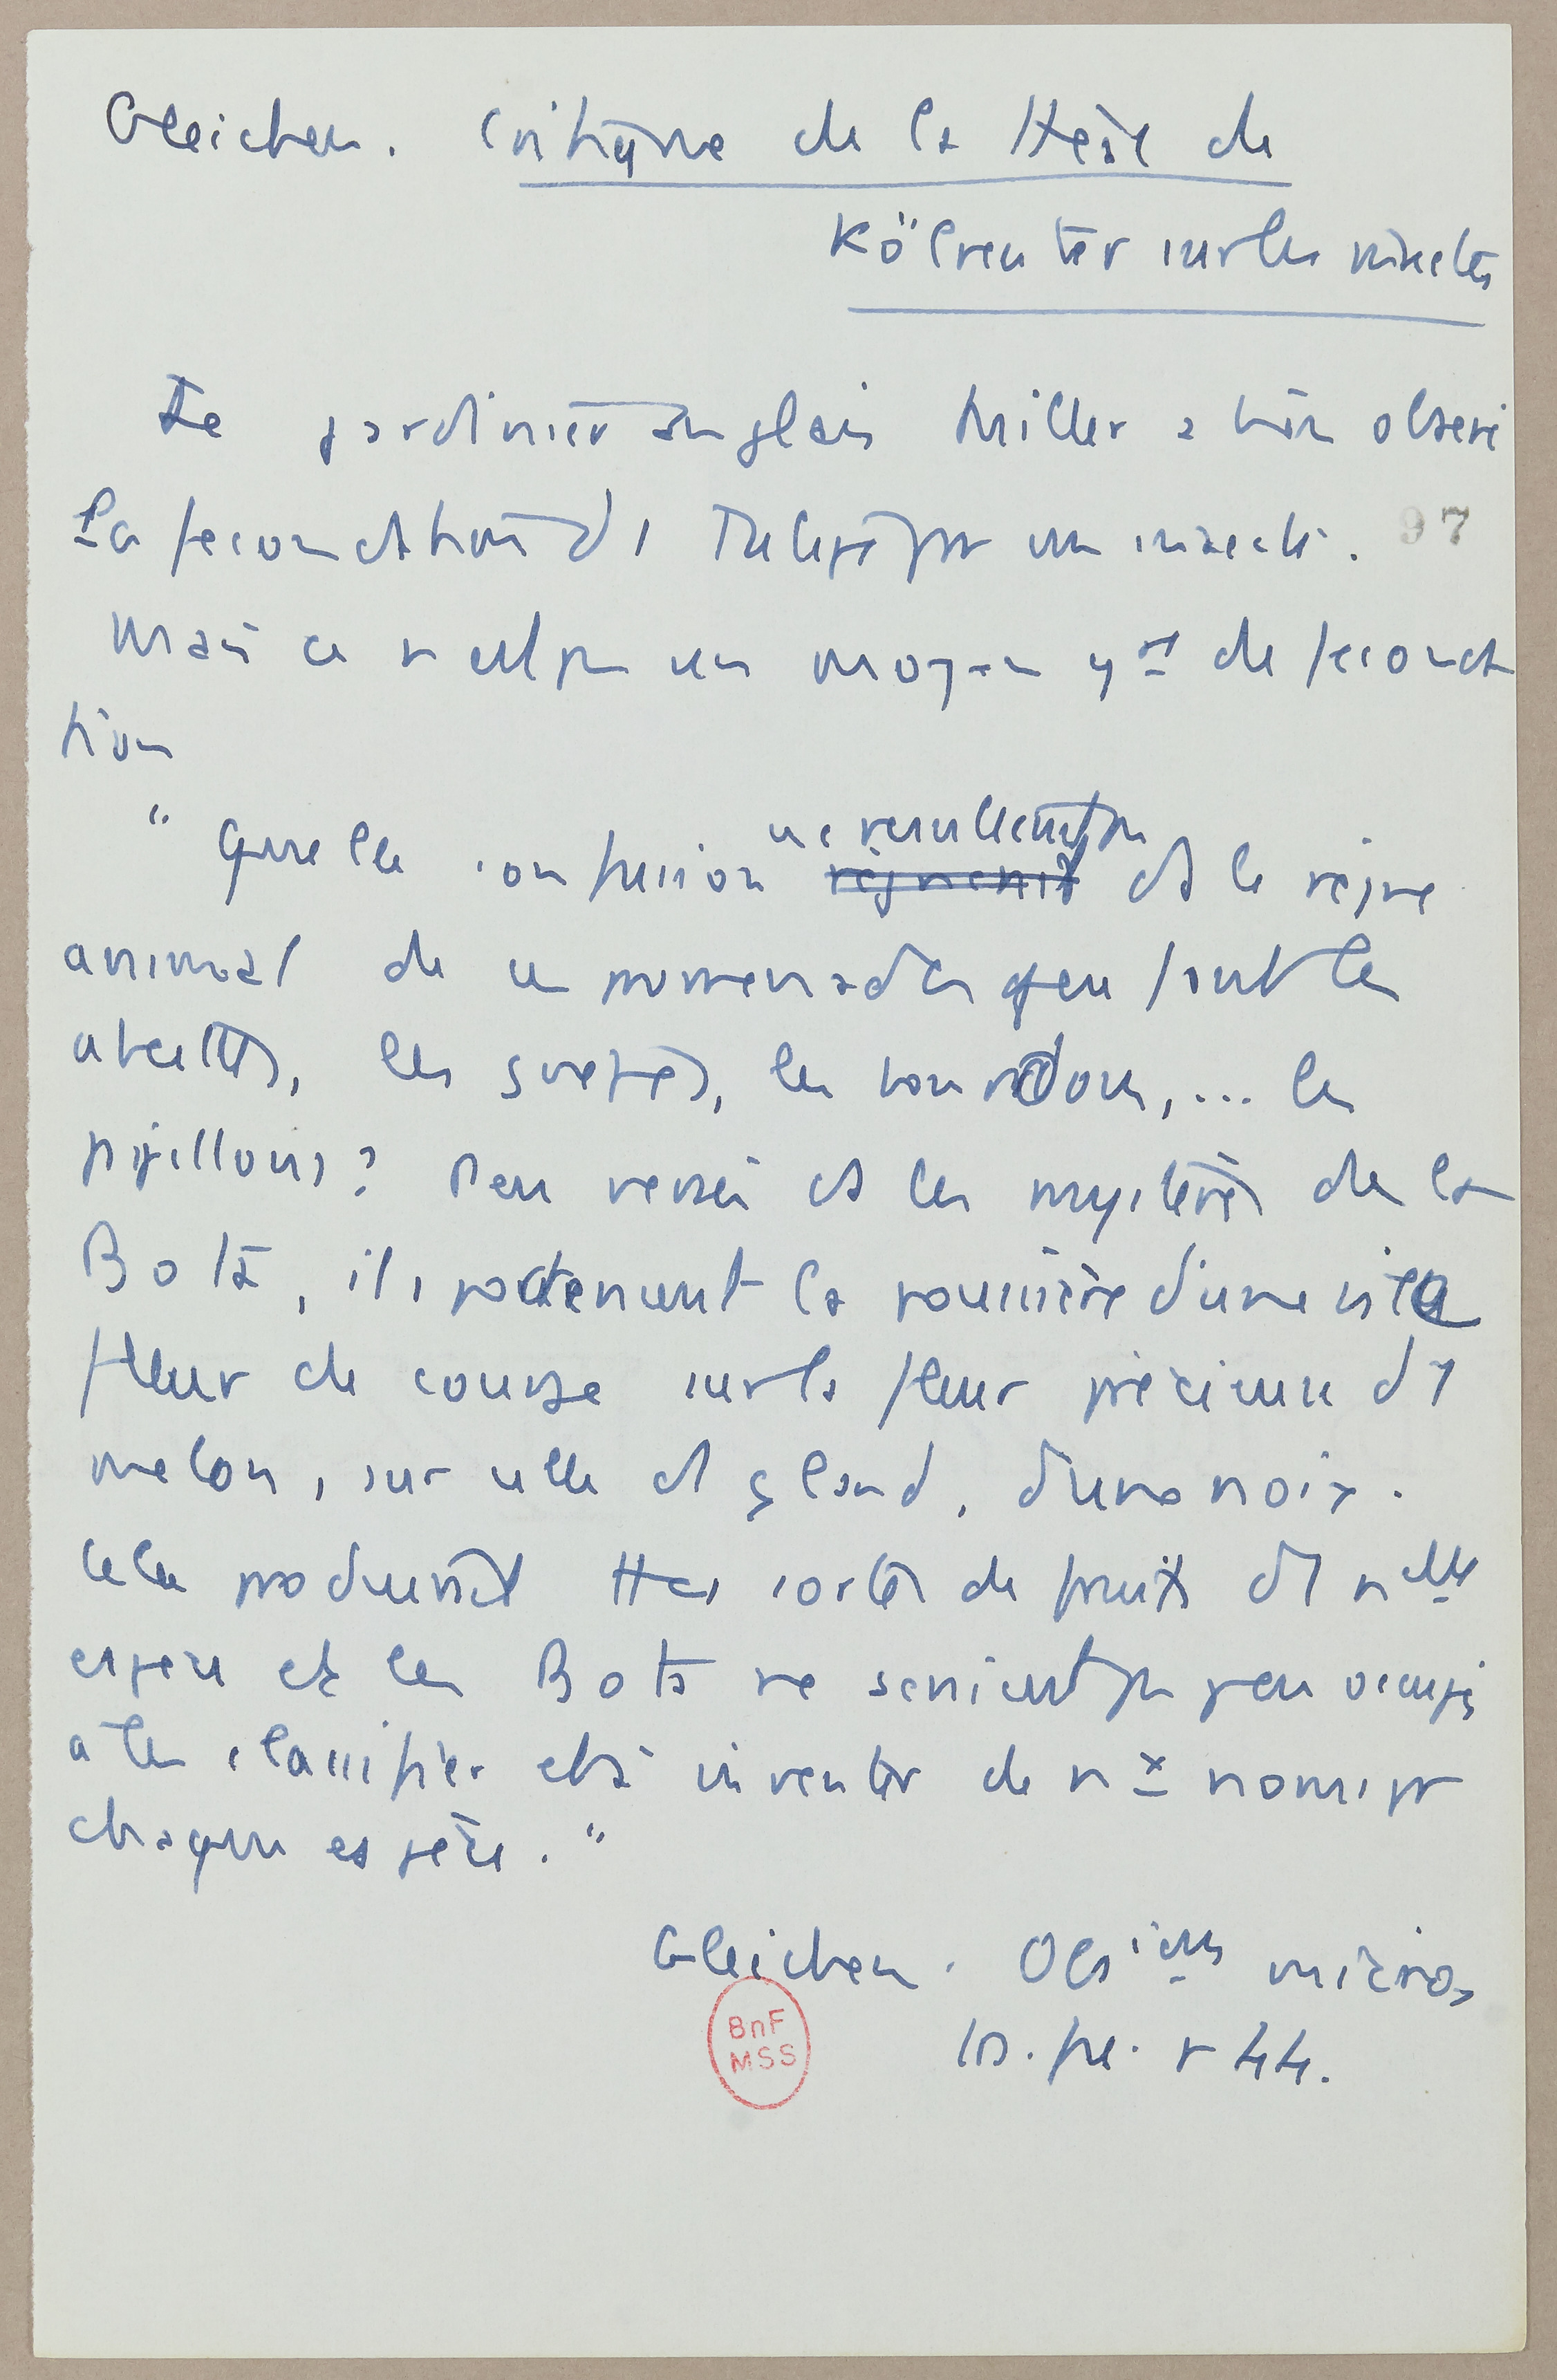 Gleichen. Critique de la thèse de
Kölreuter sur les insectes
Le jardinier anglais Miller a bien observé
la fécondation d1 Tulipe par un insecte. 97
Mais ce n'est pas un moyen gal de féconda
tion
"Quelle confusion ne résulterait pas
règnerait ds le règne
animal de ces promenades que font les
abeilles, les guêpes, les bourdons, ... les
papillons? Peu versés ds les mystères de la
Bota, ils porteraient la poussière d'une vile
fleur de courge sur la fleur précieuse d1
melon, sur celle d1 gland, d'une noix.
Cela produirait ttes sortes de fruits d1 nlle
espèce et les Bota ne seraient pas peu occupés
à les classifier et à inventer de nx noms pr
chaque espèce."
Gleichen. Obsions micros
BnF
MSS
44.